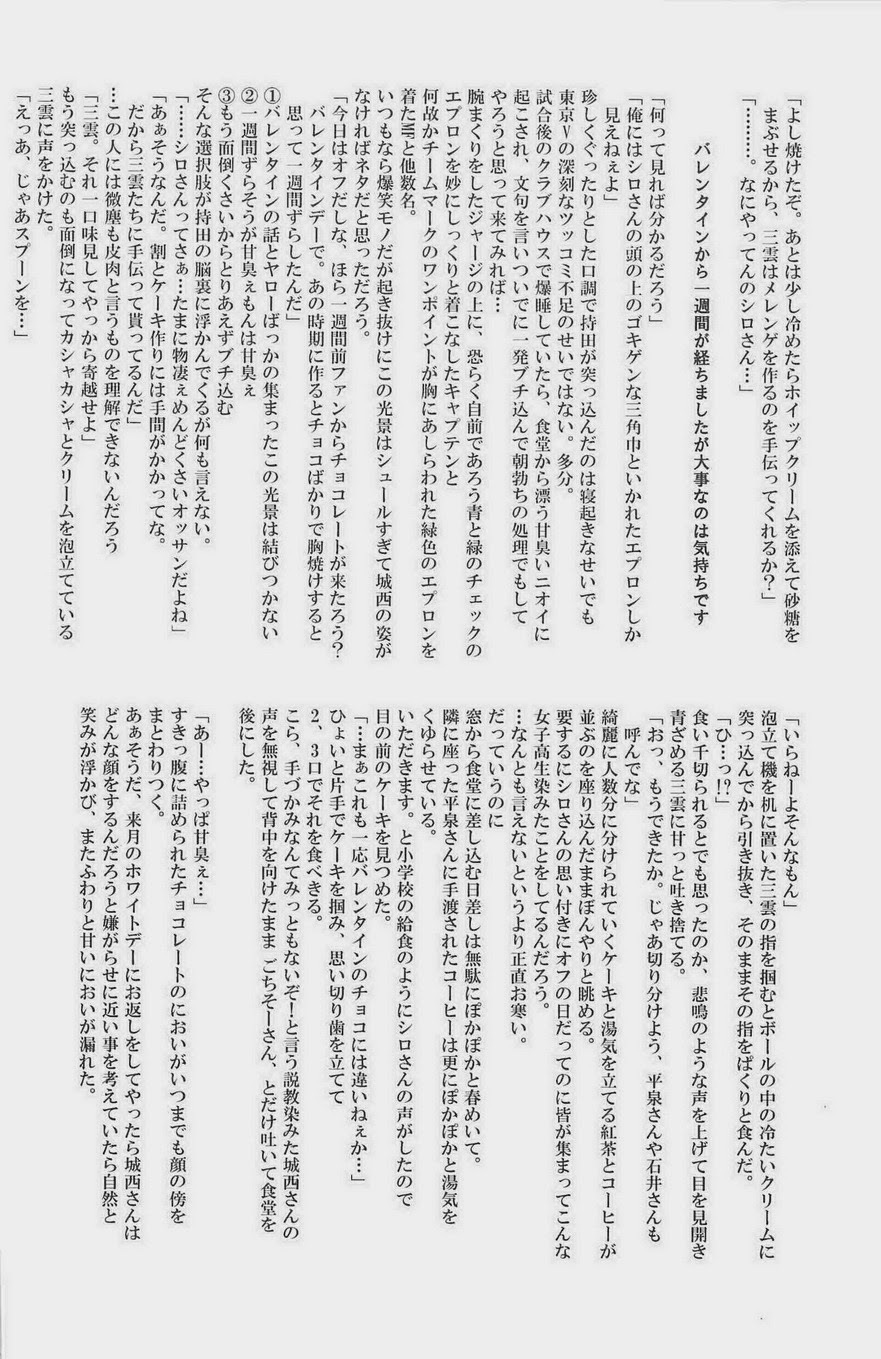 「よし焼けたぞ。あとは少し冷めたらホイップクリームを添えて砂糖を
まぶせるから、三雲はメレンゲを作るのを手伝ってくれるか？」
「………。なにやってんのシロさん…」
バレンタインから一週間が経ちましたが大事なのは気持ちです
「何って見れば分かるだろう」
「俺にはシロさんの頭の上のゴキゲンな三角巾といかれたエプロンしか
見えねぇよ」
珍しくぐったりとした口調で持田が突っ込んだのは寝起きなせいでも
東京Vの深刻なツッコミ不足のせいではない。多分。
試合後のクラブハウスで爆睡していたら、食堂から漂う甘臭いニオイに
起こされ、文句を言いついでに一発ブチ込んで朝勃ちの処理でもして
やろうと思って来てみれば…
腕まくりをしたジャージの上に、恐らく自前であろう青と緑のチェックの
エプロンを妙にしっくりと着こなしたキャプテンと
何故かチームマークのワンポイントが胸にあしらわれた緑色のエプロンを
着たWと他数名。
いつもなら爆笑モノだが起き抜けにこの光景はシュールすぎて城西の姿が
なければネタだと思っただろう。
「今日はオフだしな、ほら一週間前ファンからチョコレートが来たろう？
バレンタインデーで。あの時期に作るとチョコばかりで胸焼けすると
思って一週間ずらしたんだ」
①バレンタインの話とヤローばっかの集まったこの光景は結びつかない
②一週間ずらそうが甘臭ぇもんは甘臭ぇ
③もう面倒くさいからとりあえずブチ込む
そんな選択肢が持田の脳裏に浮かんでくるが何も言えない。
「……シロさんってさぁ…たまに物凄ぇめんどくさいオッサンだよね」
「あぁそうなんだ。割とケーキ作りには手間がかかってな。
だから三雲たちに手伝って貰ってるんだ」
…この人には微塵も皮肉と言うものを理解できないんだろう
「三雲。それ一口味見してやっから寄越せよ」
もう突っ込むのも面倒になってカシャカシャとクリームを泡立てている
三雲に声をかけた。
「えっあ、じゃあスプーンを…」
「いらねーよそんなもん」
泡立て機を机に置いた三雲の指を掴むとボールの中の冷たいクリームに
突っ込んでから引き抜き、そのままその指をぱくりと食んだ。
「ひ…っ!?」
食い千切られるとでも思ったのか、悲鳴のような声を上げて目を見開き
青ざめる三雲に甘っと吐き捨てる。
「おっ、もうできたか。じゃあ切り分けよう、平泉さんや石井さんも
呼んでな」
綺麗に人数分に分けられていくケーキと湯気を立てる紅茶とコーヒーが
並ぶのを座り込んだままぼんやりと眺める。
要するにシロさんの思い付きにオフの日だってのに皆が集まってこんな
女子高生染みたことをしてるんだろう。
…なんとも言えないというより正直お寒い。
だっていうのに
窓から食堂に差し込む日差しは無駄にぽかぽかと春めいて。
隣に座った平泉さんに手渡されたコーヒーは更にぽかぽかと湯気を
くゆらせている。
いただきます。と小学校の給食のようにシロさんの声がしたので
目の前のケーキを見つめた。
「…まぁこれも一応バレンタインのチョコには違いねぇか…」
ひょいと片手でケーキを掴み、思い切り歯を立てて
2、3口でそれを食べきる。
こら、手づかみなんてみっともないぞ！と言う説教染みた城西さんの
声を無視して背中を向けたまま ごちそーさん、とだけ吐いて食堂を
後にした。
「あー…やっぱ甘臭ぇ…」
すきっ腹に詰められたチョコレートのにおいがいつまでも顔の傍を
まとわりつく。
あぁそうだ、来月のホワイトデーにお返しをしてやったら城西さんは
どんな顔をするんだろうと嫌がらせに近い事を考えていたら自然と
笑みが浮かび、またふわりと甘いにおいが漏れた。